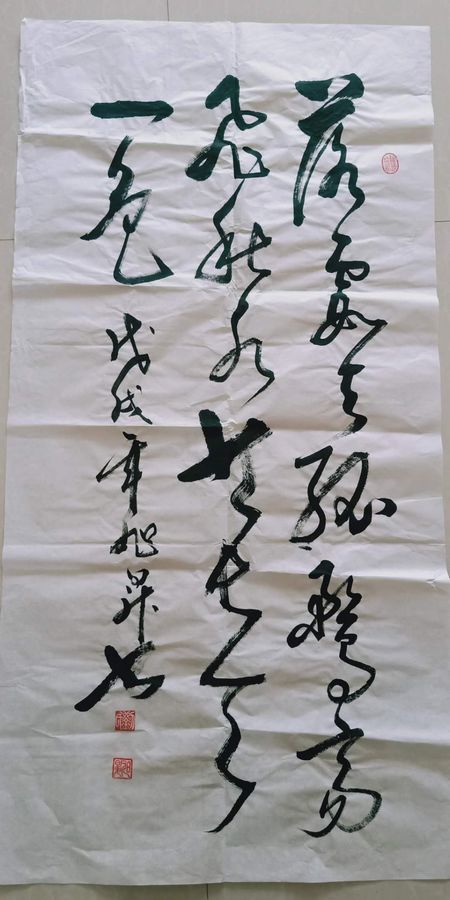 落霞与孤鹜齐
飞秋水共长天
一色 戊戌年旭昇书